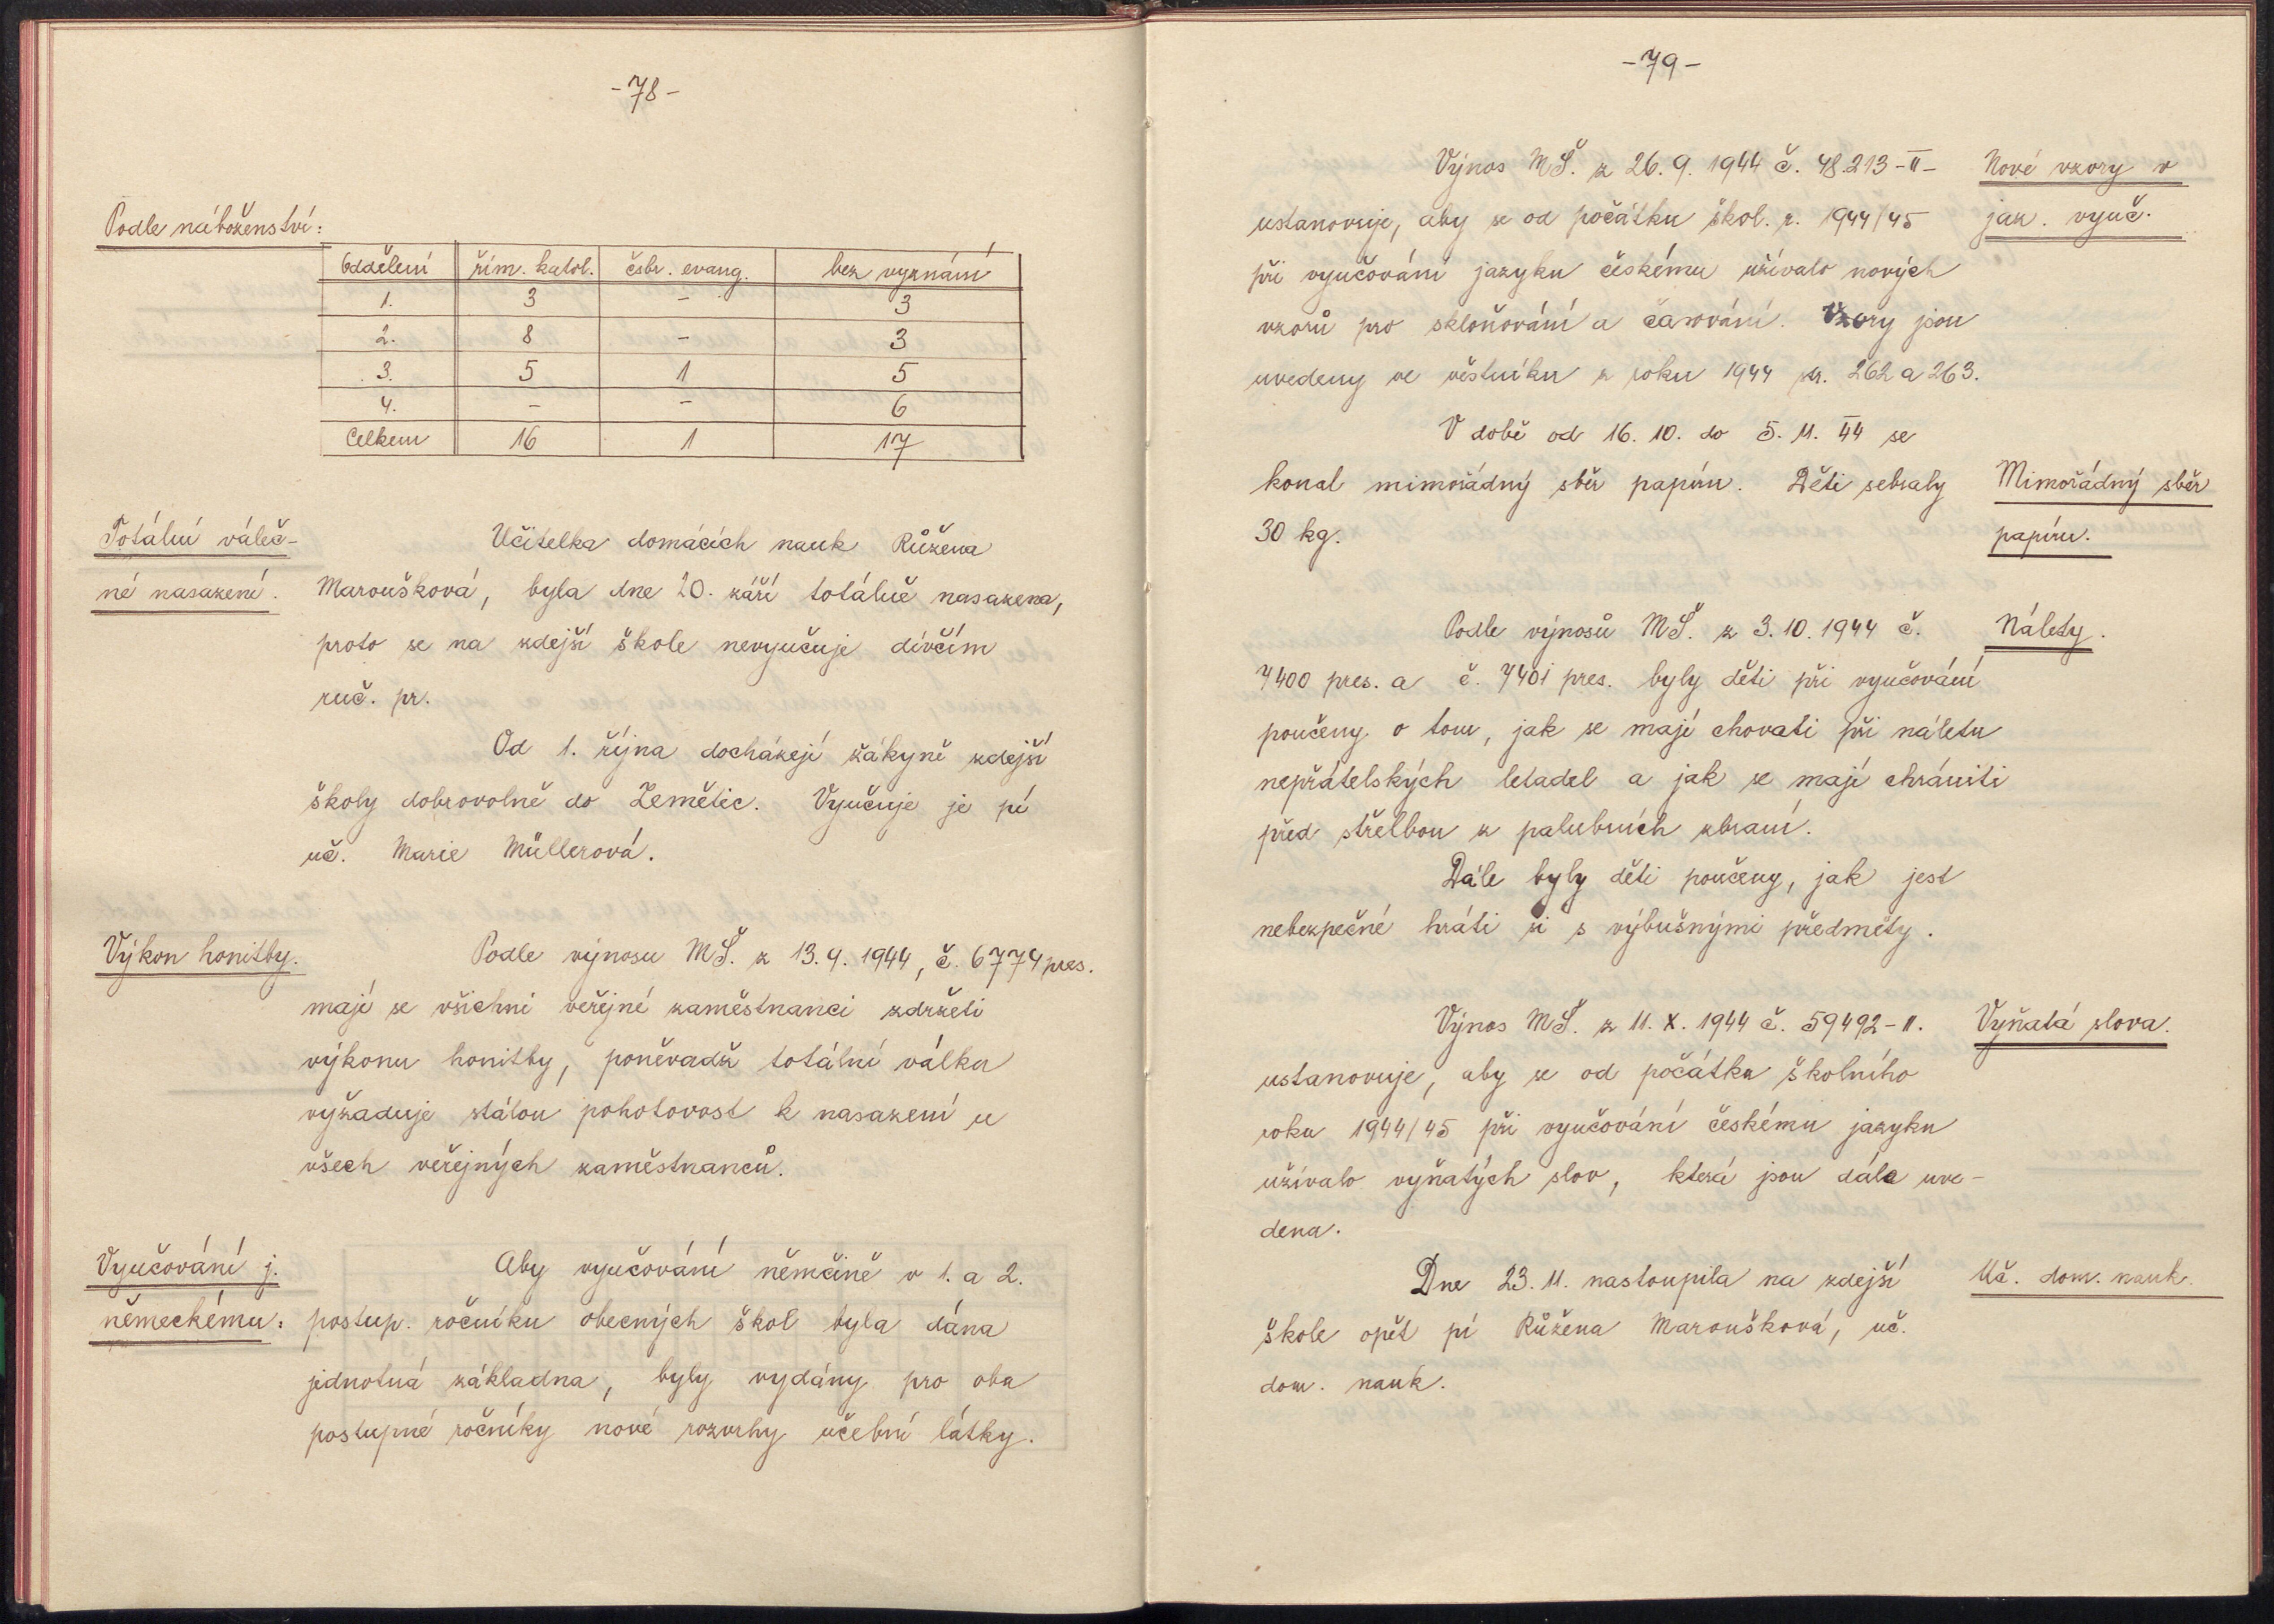 -78-
Podle náboženství:
Oddělení řím. katol. čsbr. evang. bez vyznání
1. 3 - 3
2. 8 - 3
3. 5 1 5
4. - - 6
Celkem 16 1 17
Totální váleč-
né nasazení.
Učitelka domácích nauk Růžena
Maroušková, byla dne 20. září totálně nasazena,
proto se na zdejší škole nevyučuje dívčím
ruč. pr.
Od 1. října docházejí žákyně zdejší
školy dobrovolně do Zemětic. Vyučuje je pí
uč. Marie Müllerová.
Výkon honitby.
Podle výnosu MŠ. z 13.9.1944, č. 6774 pres.
mají se všichni veřejné zaměstnanci zdržeti
výkonu honitby, poněvadž totální válka
vyžaduje stálou pohotovost k nasazení u
všech veřejných zaměstnanců.
Vyučování j.
německému:
Aby vyučování němčině v 1. a 2.
postup. ročníku obecných škol byla dána
jednotná základna, byly vydány pro oba
postupné ročníky nové rozvrhy učební látky.
-79-
Výnos MŠ. z 26.9.1944 č. 48.213-II-
ustanovuje, aby se od počátku škol. r. 1944/45
při vyučování jazyku českému užívalo nových
vzorů pro skloňování a časování. Vzory jsou
uvedeny ve věstníku z roku 1944 str. 262 a 263.
Nové vzory v
jaz. vyuč.
V době od 16. 10. do 5. 11. 44 se
konal mimořádný sběr papíru. Děti sebraly
30 kg.
Mimořádný sběr
papíru.
Podle výnosů MŠ. z 3.10.1944 č.
7400 pres. a č. 7401 pres. byly děti při vyučování
poučeny o tom, jak se mají chovati při náletu
nepřátelských letadel a jak se mají chrániti
před střelbou z palubních zbraní.
Nálety.
Dále byly děti poučeny, jak jest
nebezpečné hráti si s výbušnými předměty.
Výnos MŠ. z 11. X. 1944 č. 59492-II.
ustanovuje, aby se od počátku školního
roku 1944/45 při vyučování českému jazyku
užívalo vyňatých slov, která jsou dále uve-
dena.
Vyňatá slova.
Dne 23. 11. nastoupila na zdejší
škole opět pí Růžena Maroušková, uč.
dom. nauk.
Uč. dom. nauk.